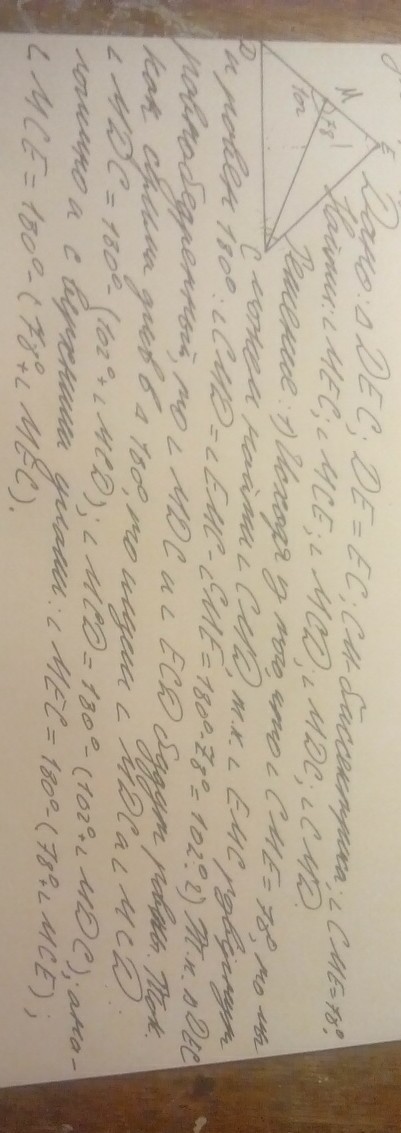 Дано: △ DEC; DE = EC; CM - биссектриса; ∠ CME = 78°;
Найти: ∠ MEC; ∠ MCE; ∠ MCD; ∠ MDC; ∠ CMD.
Решение: 1) Исходя из того, что ∠ CME = 78°, то мы
с можем найти ∠ CMD, т.к. ∠ EMC
и равен 180°: ∠ CMD = ∠ EMC - ∠ CME = 180° - 78° = 102°. 2) Т.к. △ DEC
равнобедренный, то ∠ MDC и ∠ ECD будут равны. Т.к.
как сумма углов △ 180°, то ищем ∠ MDC и ∠ MCD:
∠ MDC = 180° - (102° + ∠ MCD); ∠ MCD = 180° - (102° + ∠ MDC); ана-
логично и с верхними углами: ∠ MEC = 180° - (78° + ∠ MCE);
∠ MCE = 180° - (78° + ∠ MEC).
E
M
78
102
D
C